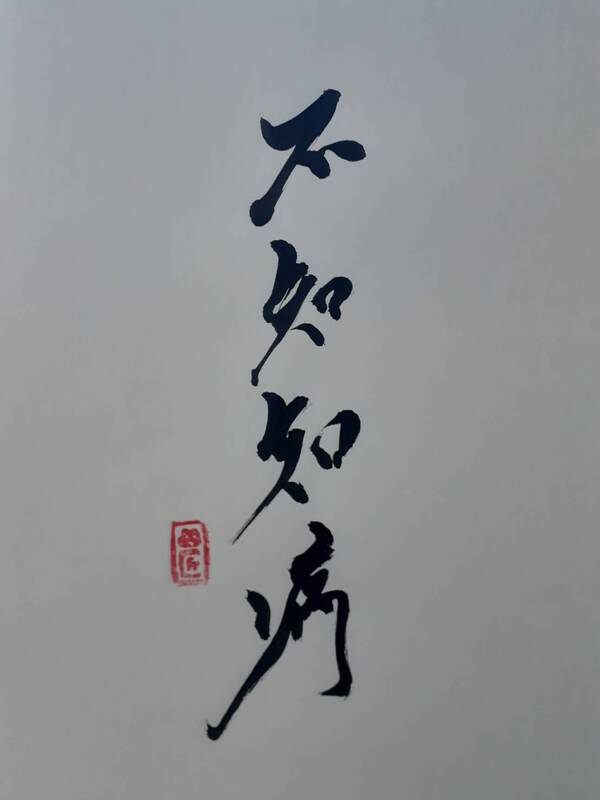 不知知病